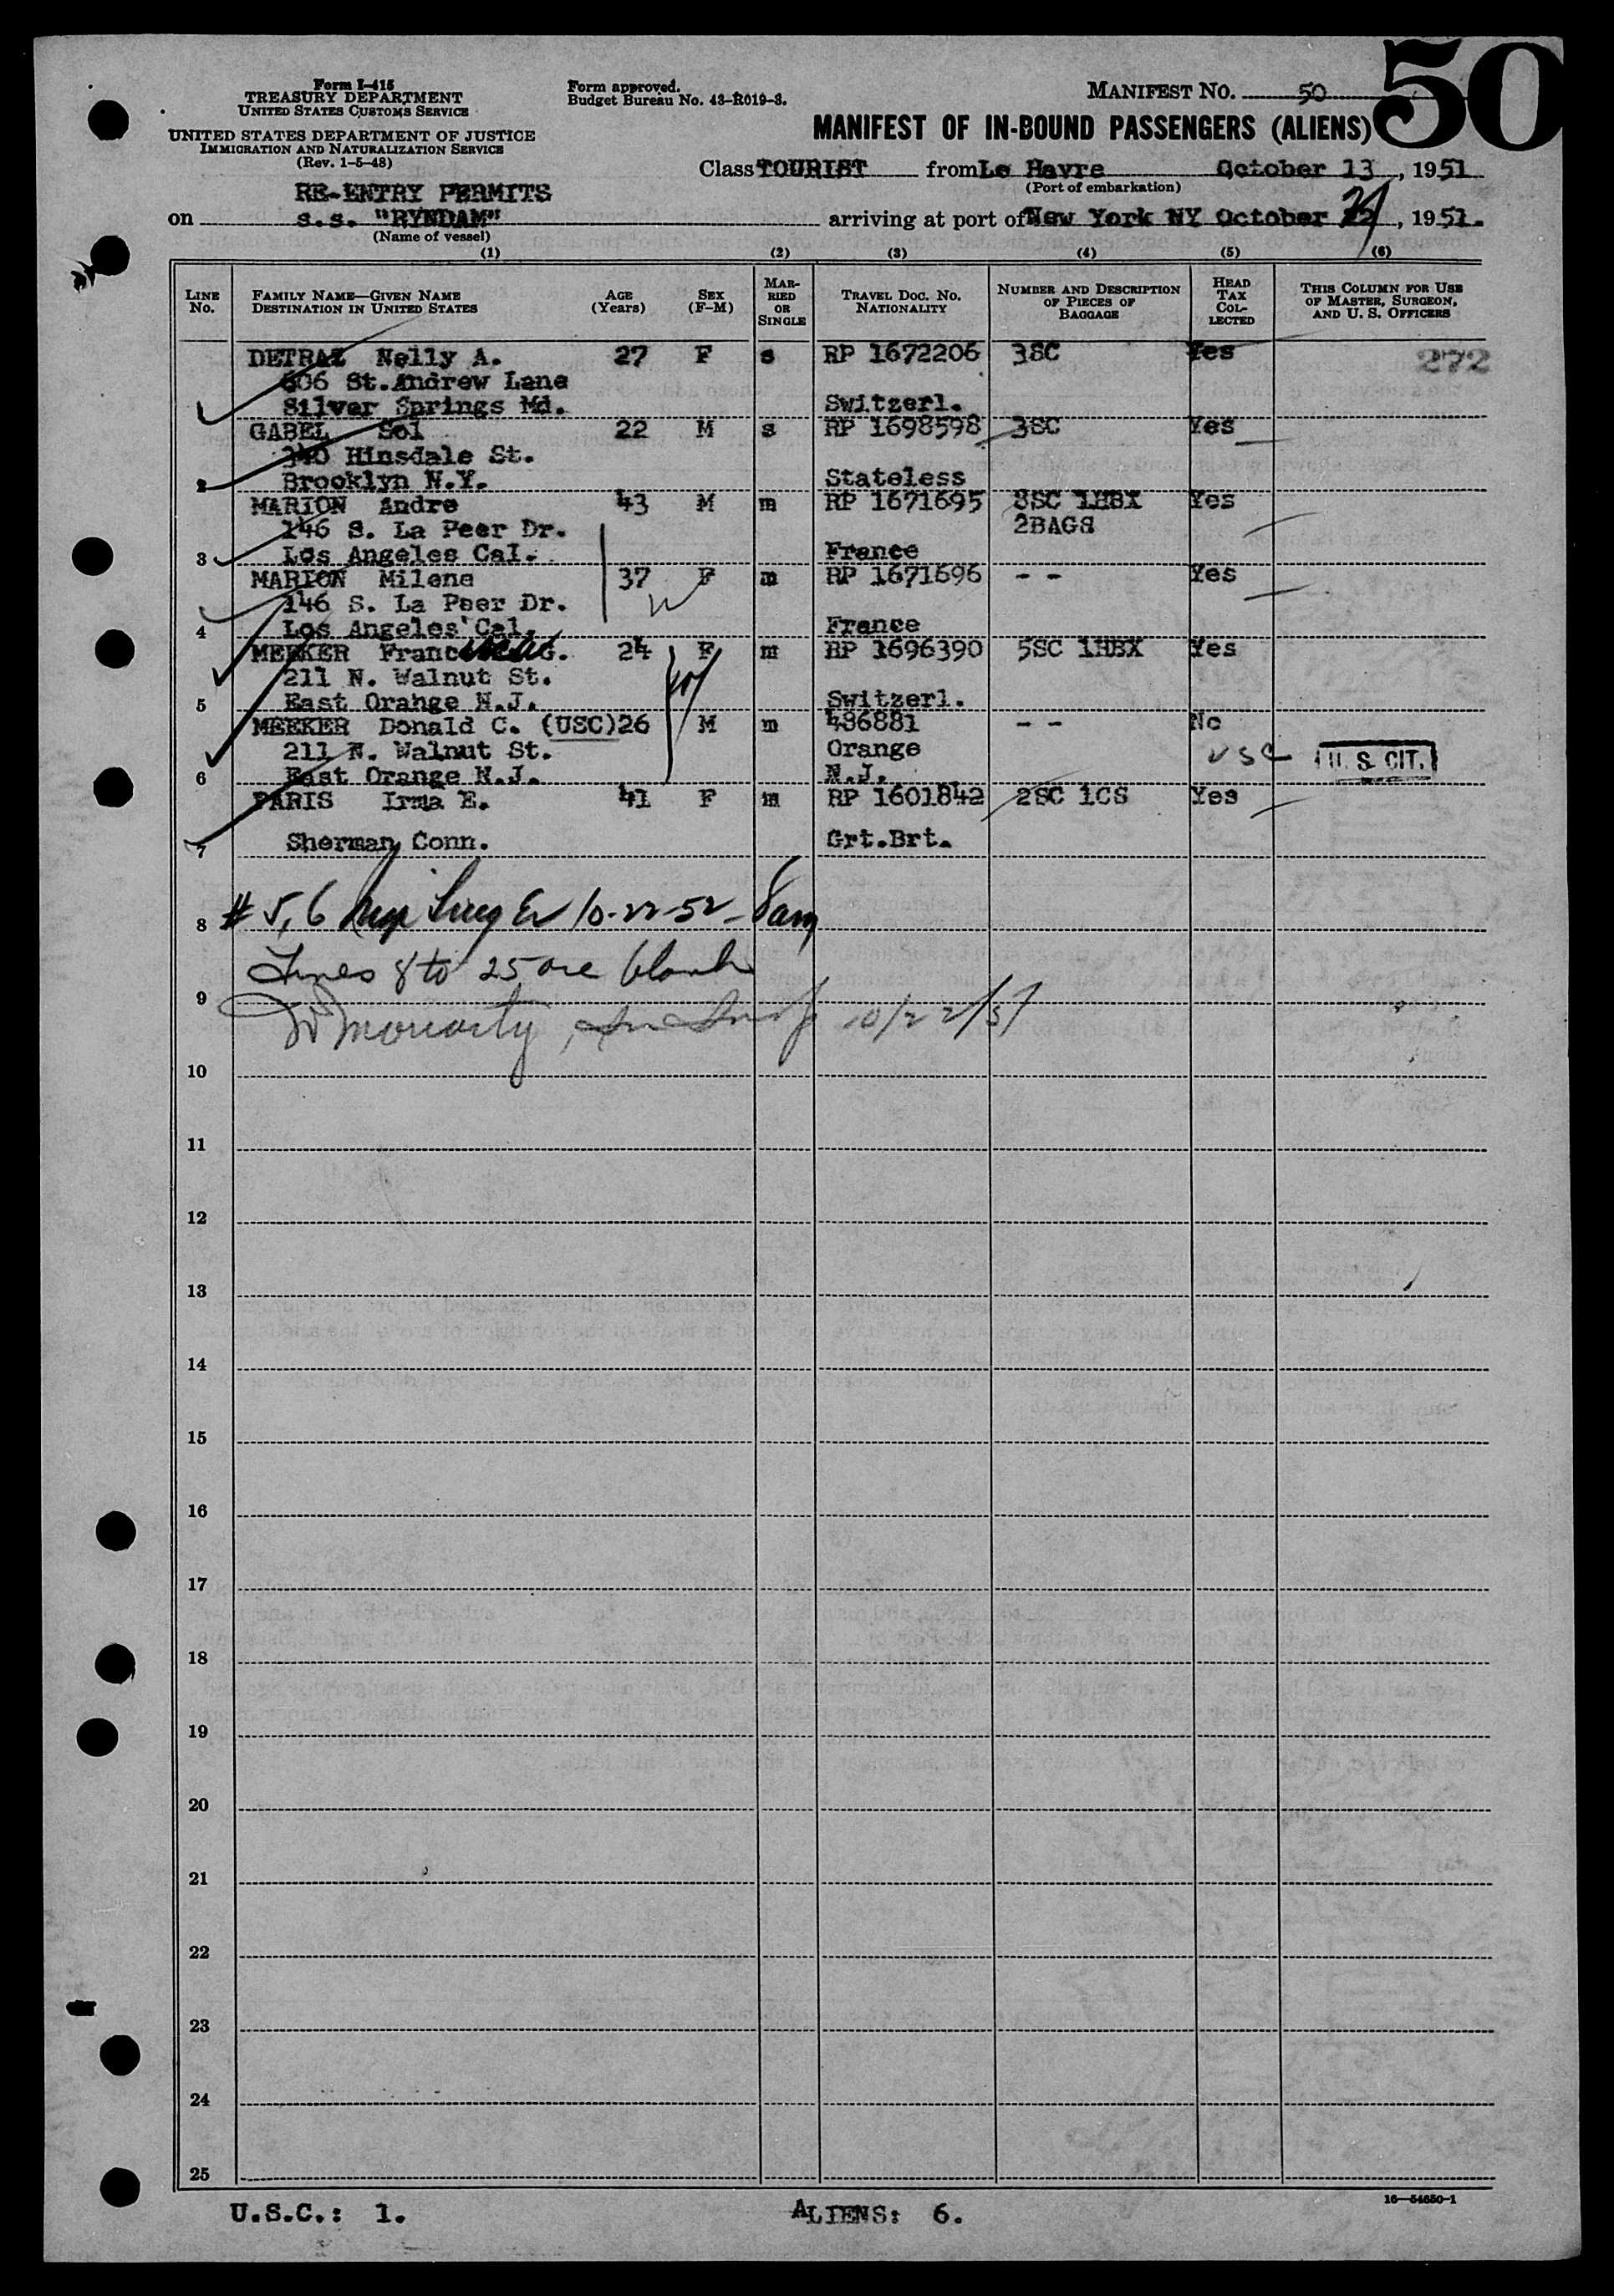 Form I-415
TREASURY DEPARTMENT
UNITED STATES CUSTOMS SERVICE
UNITED STATES DEPARTMENT OF JUSTICE
IMMIGRATION AND NATURALIZATION SERVICE
(Rev. 1-5-48)
Form approved.
Budget Bureau No. 43-R019-3.
MANIFEST NO. 50
50
MANIFEST OF IN-BOUND PASSENGERS (ALIENS)
Class TOURIST from Le Havre October 13, 1951
(Port of embarkation)
RE-ENTRY PERMITS
on s.s. "RYNDAM" arriving at port of New York NY October , 1951.
(Name of vessel)
(1) (2) (3) (4) (5) (6)
LINE NO. FAMILY NAME—GIVEN NAME DESTINATION IN UNITED STATES AGE (Years) SEX (F-M) MARRIED OR SINGLE TRAVEL DOC. NO. NATIONALITY NUMBER AND DESCRIPTION OF PIECES OF BAGGAGE HEAD TAX COLLECTED THIS COLUMN FOR USE OF MASTER, SURGEON, AND U. S. OFFICERS
DETRAZ Nelly A. 27 F s RP 1672206 3SC Yes 272
606 St.Andrew Lane
Silver Springs Md. Switzerl.
GABEL Sol 22 M s RP 1698598 3SC Yes
340 Hinsdale St.
2 Brooklyn N.Y. Stateless
MARION Andre 43 M m RP 1671695 8SC 1HBX Yes
146 S. La Peer Dr. 2BAGS
3 Los Angeles Cal. France
MARION Milene 37 F m RP 1671696 - - Yes
146 S. La Peer Dr.
4 Los Angeles Cal. France
MEEKER G. 24 F m RP 1696390 5SC 1HBX Yes
211 N. Walnut St.
5 East Orange N.J. Switzerl.
MEEKER Donald C. (USC) 26 M m 436881 - - No
211 N. Walnut St. Orange USC U. S. CIT.
6 East Orange N.J. N.J.
PARIS Irma E. 41 F m RP 1601842 2SC 1CS Yes
7 Sherman Conn. Grt.Brt.
8 # 5, 6 10-22-52 - 8am
Lines 8 to 25 are blank
9
Moriarty, 10/22/51
10
11
12
13
14
15
16
17
18
19
20
21
22
23
24
25
16—54650-1
U.S.C.: 1. ALIENS: 6.